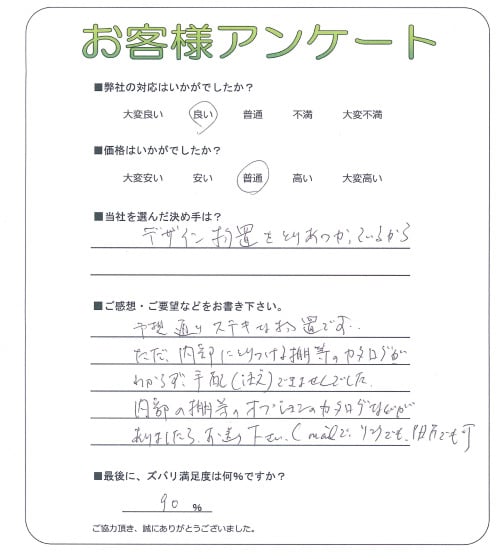 お客様アンケート
■弊社の対応はいかがでしたか？
大変良い 良い 普通 不満 大変不満
■価格はいかがでしたか？
大変安い 安い 普通 高い 大変高い
■当社を選んだ決め手は？
デザイン物置をとりあつかっているから
■ご感想・ご要望などをお書き下さい。
予想通りステキな物置です．
ただ、内部にとりつける棚等のカタログが
わからず、手配(注文)できませんでした．
内部の棚等のオプションのカタログなどが
ありましたら、お送り下さい．( mailで、リンクでも、 でも可
■最後に、ズバリ満足度は何%ですか？
90 %
ご協力頂き、誠にありがとうございました。